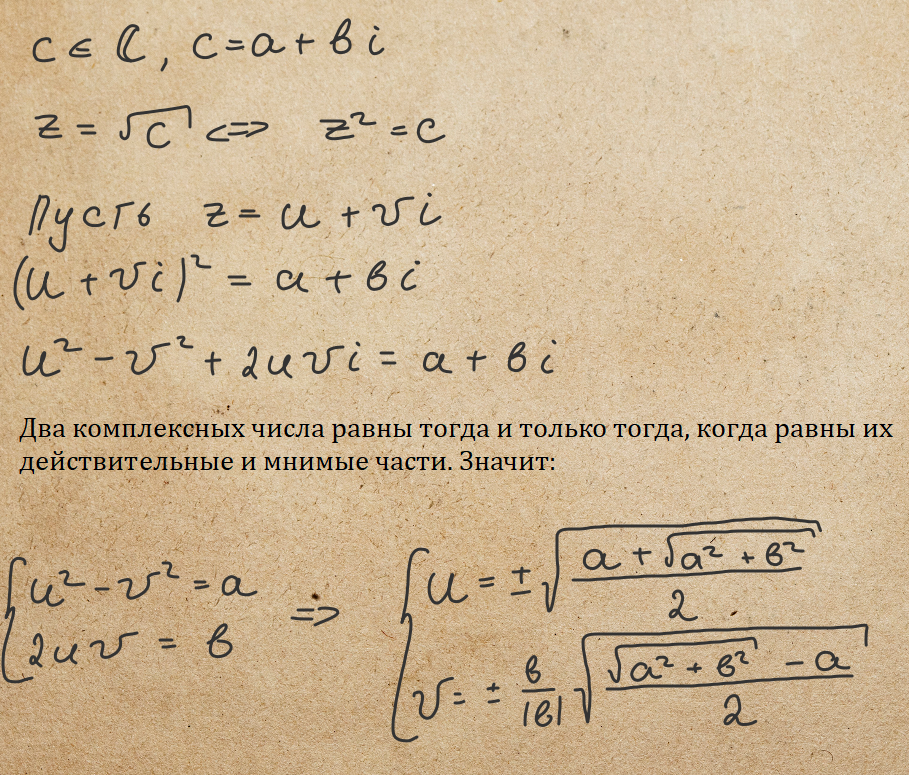 c ∈ ℂ, c = a + вi
z = √c <=> z² = c
Пусть z = u + vi
(u + vi)² = a + вi
u² - v² + 2uvi = a + вi
Два комплексных числа равны тогда и только тогда, когда равны их
действительные и мнимые части. Значит:
{ u² - v² = a => { u = ±√((a + √(a² + в²))/2)
{ 2uv = в { v = ± в/|в| √((√(a² + в²) - a)/2)